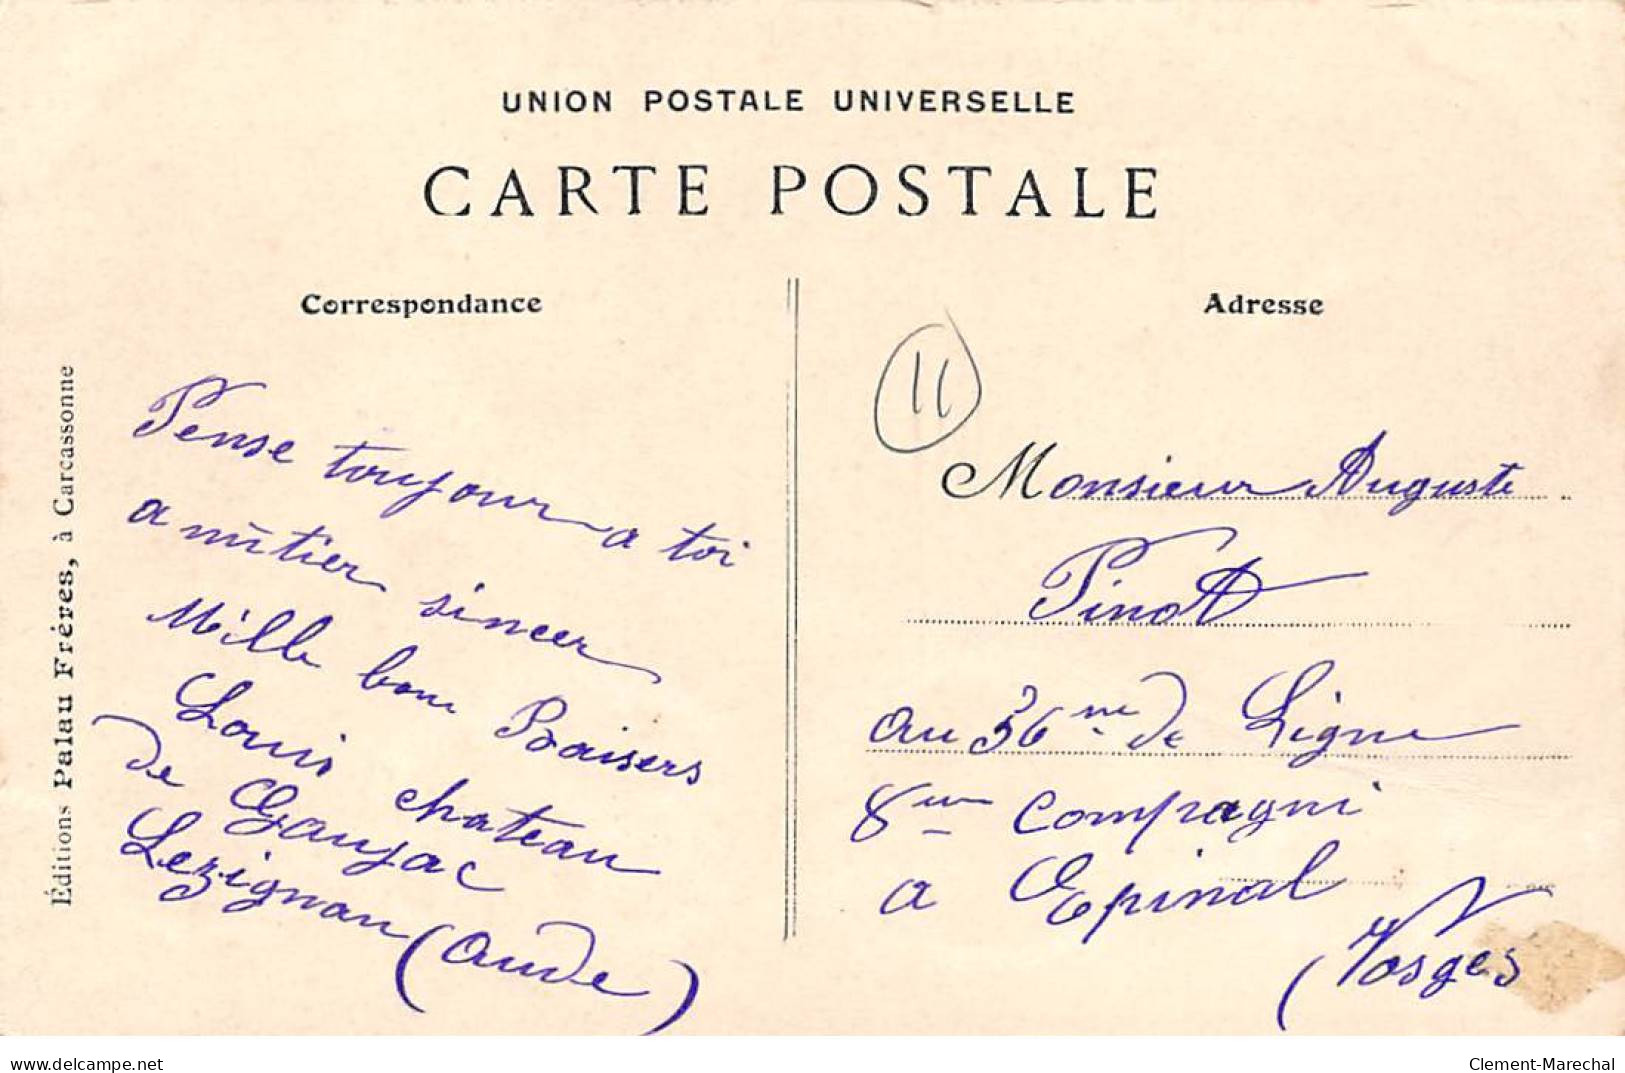 UNION POSTALE UNIVERSELLE
CARTE POSTALE
Correspondance
Adresse
Éditions Palau Fréres, à Carcassonne
Pense toujour a toi
amitier sincer
Mille bon Baisers
Louis chateau
de Gaujac
Lezignan (Aude)
11
Monsieur Auguste
Pinot
au 36me de Ligne
8me Compagni
a Epinal
(Vosges
delcampe.net
Clement-Marechal